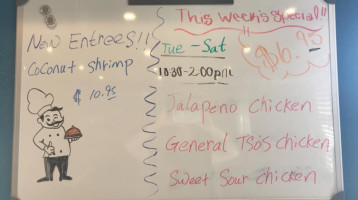 New Entrees!!
Coconut shrimp
$ 10.95
This Week's Special!!
Tue - Sat
10:30-2:00p.m
$6.95
Jalapeno chicken
General Tso's chicken
Sweet Sour chicken